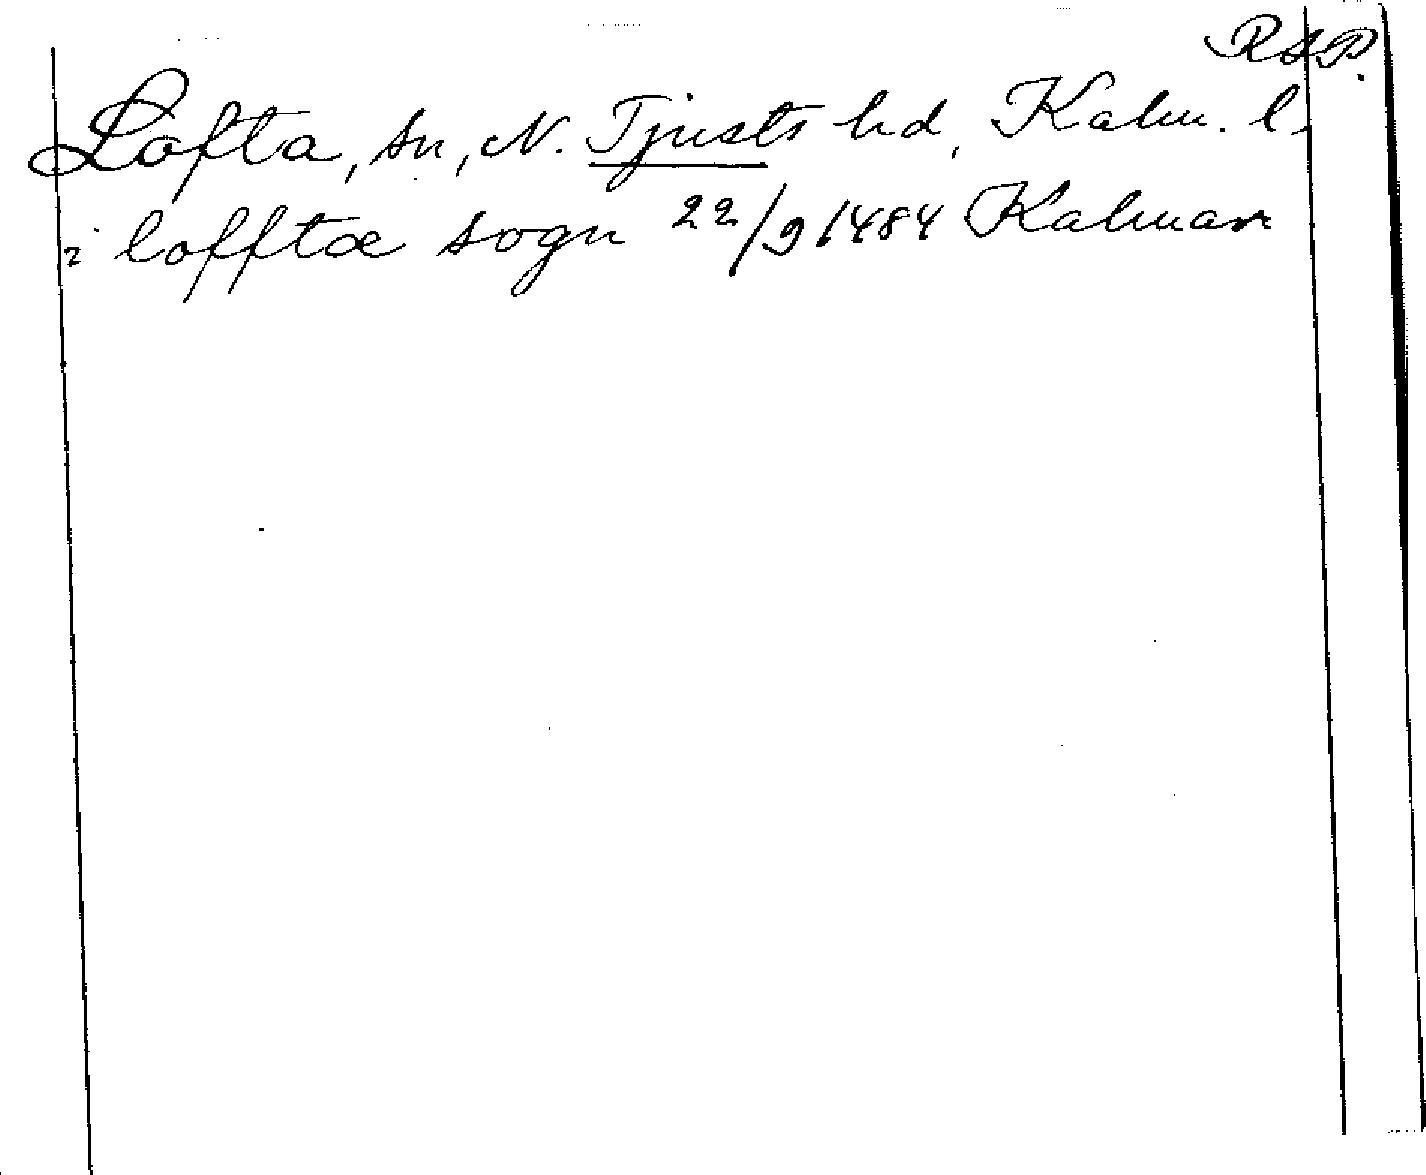 RAP.
Lofta, sn, N. Tjusts hd, Kalm. l.
i lofftæ sogn 22/9 1484 Kalmar